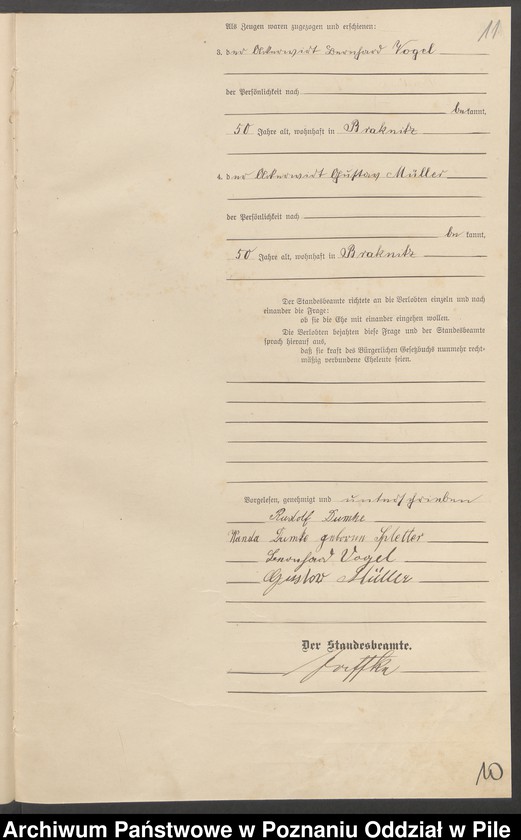 11
Als Zeugen waren zugezogen und erschienen:
3. der Ackerwirt Bernhard Vogel
der Persönlichkeit nach
bekannt,
50 Jahre alt, wohnhaft in Braknitz
4. der Ackerwirt Gustav Müller
der Persönlichkeit nach
be kannt,
50 Jahre alt, wohnhaft in Braknitz
Der Standesbeamte richtete an die Verlobten einzeln und nach
einander die Frage:
ob sie die Ehe mit einander eingehen wollen.
Die Verlobten bejahten diese Frage und der Standesbeamte
sprach hierauf aus,
daß sie kraft des Bürgerlichen Gesetzbuchs nunmehr recht-
mäßig verbundene Eheleute seien.
Vorgelesen, genehmigt und unterschrieben
Rudolf Dumke
Wanda Dumke geborene Spletter
Bernhard Vogel
Gustav Müller
Der Standesbeamte.
10
Archiwum Państwowe w Poznaniu Oddział w Pile